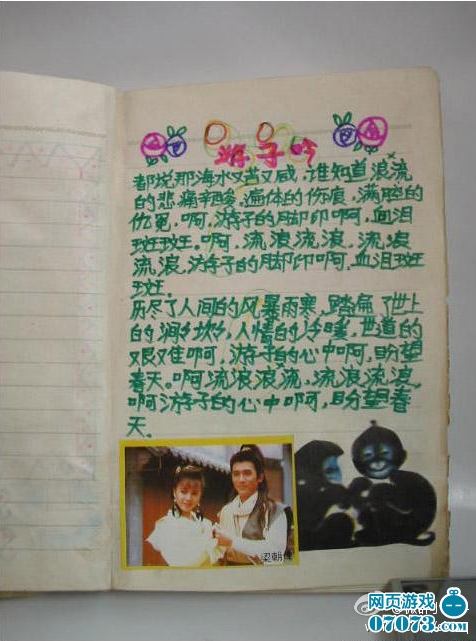 游子吟
都说那海水又苦又咸,谁知道浪流
的悲痛辛酸,遍体的伤痕,满腔的
仇冤,啊,游子的脚印啊,血泪
斑斑,啊,流浪流浪,流浪
流浪,游子的脚印啊,血泪斑
斑.
历尽了人间的风暴雨寒,踏遍了世上
的涧沟坎,人情的冷暖,世道的
艰难啊,游子的心中啊,盼望
春天。啊流浪浪流,流浪流浪
啊游子的心中啊,盼望春
天.
梁朝伟
网页游戏
07073.com